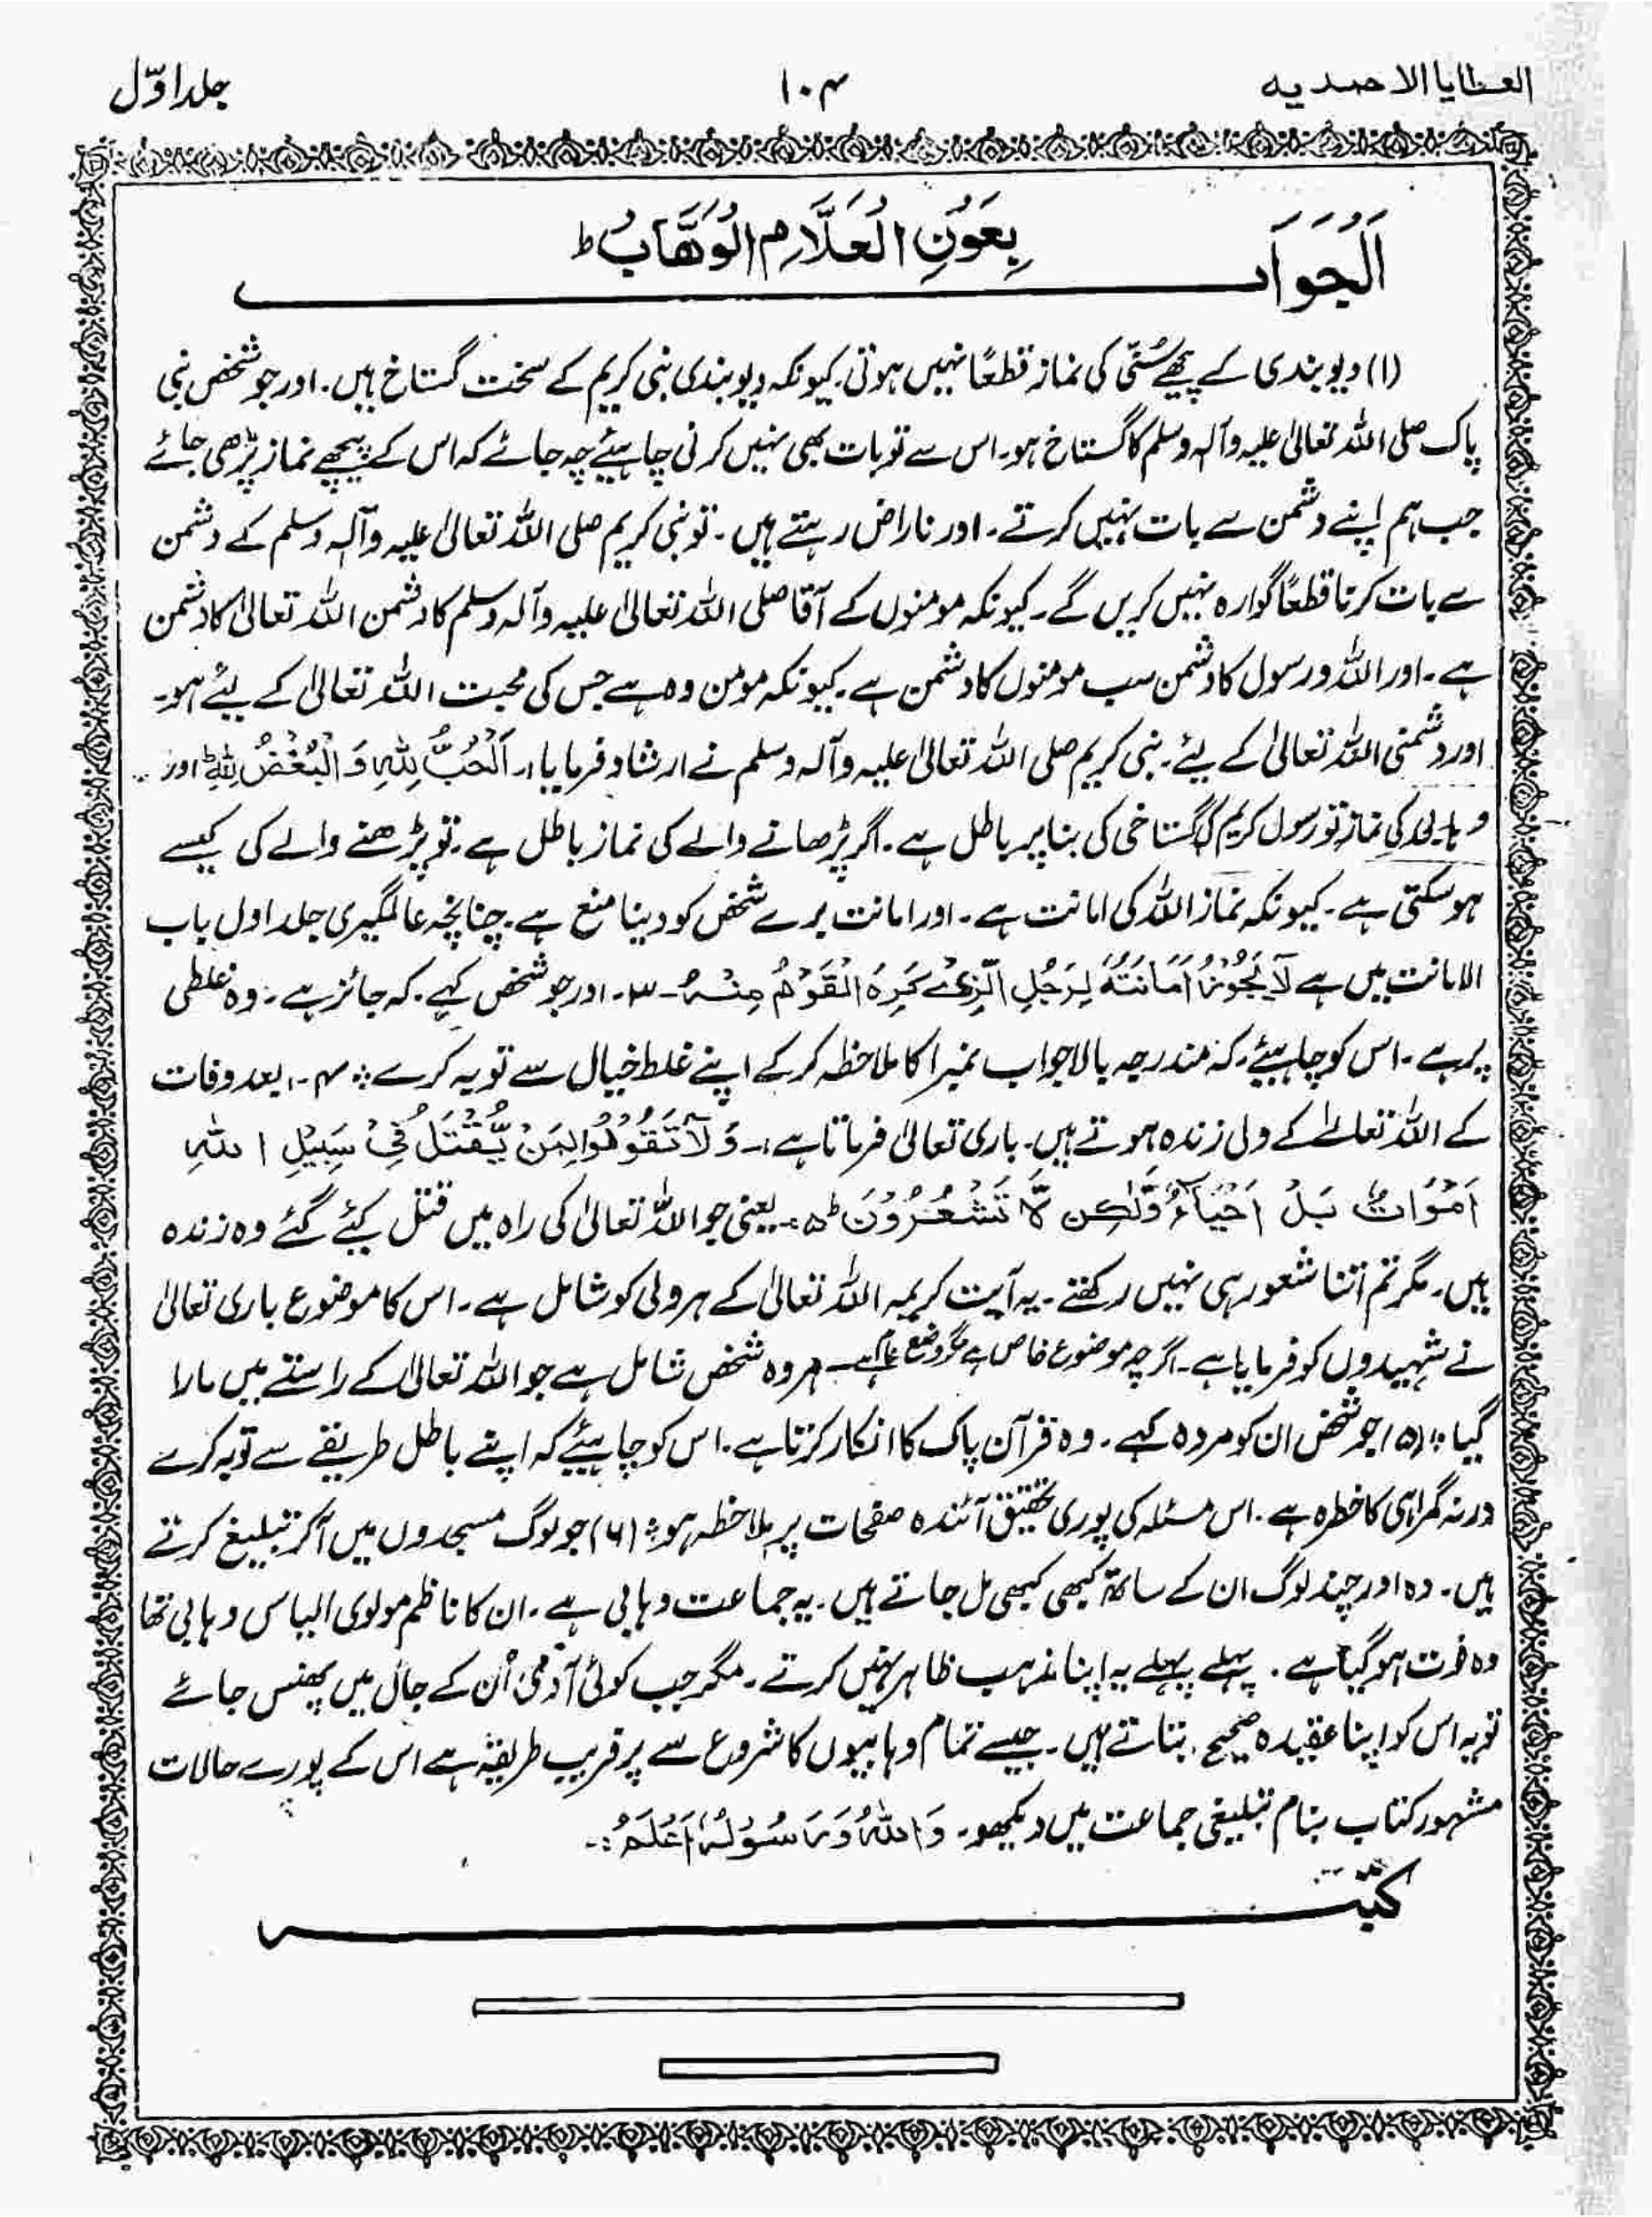 العطایا الاحمدیہ ۱۰۴ جلد اوّل
اَلْجَوَاب بِعَوْنِ الْعَلَّامِ الْوَهَّابُ ط
(۱) دیوبندی کے پیچھے سُنّی کی نماز قطعًا نہیں ہوتی۔ کیونکہ دیوبندی نبی کریم کے سخت گستاخ ہیں۔ اور جو شخص نبی
پاک صلی اللہ تعالیٰ علیہ وآلہ وسلم کا گستاخ ہو۔ اس سے تو بات بھی نہیں کرنی چاہیئے چہ جائے کہ اس کے پیچھے نماز پڑھی جائے
جب ہم اپنے دشمن سے بات نہیں کرتے۔ اور ناراض رہتے ہیں۔ تو نبی کریم صلی اللہ تعالیٰ علیہ وآلہ وسلم کے دشمن
سے بات کرنا قطعًا گوارہ نہیں کریں گے۔ کیونکہ مومنوں کے آقا صلی اللہ تعالیٰ علیہ وآلہ وسلم کا دشمن اللہ تعالیٰ کا دشمن
ہے۔ اور اللہ ورسول کا دشمن سب مومنوں کا دشمن ہے۔ کیونکہ مومن وہ ہے جس کی محبت اللہ تعالیٰ کے لیئے ہو۔
اور دشمنی اللہ تعالیٰ کے لیئے۔ نبی کریم صلی اللہ تعالیٰ علیہ وآلہ وسلم نے ارشاد فرمایا:۔ اَلْحُبُّ لِلّٰہِ وَ الْبُغْضُ لِلّٰہِ اور
وہابی کی نماز تو رسول کریم کی گستاخی کی بنا پر باطل ہے۔ اگر پڑھانے والے کی نماز باطل ہے۔ تو پڑھنے والے کی کیسے
ہو سکتی ہے۔ کیونکہ نماز اللہ کی امانت ہے۔ اور امانت برے شخص کو دینا منع ہے۔ چنانچہ عالمگیری جلد اول باب
الامانت میں ہے لَا یَجُوْزُ اَمَانَتُہٗ لِرَجُلِ الَّذِیْ کَرِہَ الْقَوْمُ مِنْہُ۔ ۳۔ اور جو شخص کہے۔ کہ جائز ہے۔ وہ غلطی
پر ہے۔ اس کو چاہیئے۔ کہ مندرجہ بالا جواب نمبر ا کا ملاحظہ کر کے اپنے غلط خیال سے توبہ کرے ؞ ۴۔ بعد وفات
کے اللہ تعالےٰ کے ولی زندہ ہوتے ہیں۔ باری تعالیٰ فرماتا ہے:۔ وَ لَا تَقُوْلُوْا لِمَنْ یُّقْتَلُ فِیْ سَبِیْلِ اللہِ
اَمْوَاتٌ بَلْ اَحْیَآءٌ وَّلٰکِن لَّا تَشْعُرُوْنَ ط ۵ ؞ یعنی جو اللہ تعالیٰ کی راہ میں قتل کیئے گئے وہ زندہ
ہیں۔ مگر تم اتنا شعور ہی نہیں رکھتے۔ یہ آیت کریمہ اللہ تعالیٰ کے ہر ولی کو شامل ہے۔ اس کا موضوع باری تعالیٰ
نے شہیدوں کو فرمایا ہے۔ اگرچہ موضوع خاص ہے مگر وضع عام ہے۔ ہر وہ شخص شامل ہے جو اللہ تعالیٰ کے راستے میں مارا
گیا ؞ (۵) جو شخص ان کو مردہ کہے۔ وہ قرآن پاک کا انکار کرتا ہے۔ اس کو چاہیئے کہ اپنے باطل طریقے سے توبہ کرے
ورنہ گمراہی کا خطرہ ہے۔ اس مسئلہ کی پوری تحقیق آئندہ صفحات پر ملاحظہ ہو ؞ (۶) جو لوگ مسجدوں میں آکر تبلیغ کرتے
ہیں۔ وہ اور چند لوگ ان کے ساتھ کبھی کبھی مل جاتے ہیں۔ یہ جماعت وہابی ہے۔ ان کا ناظم مولوی الیاس وہابی تھا
وہ فوت ہو گیا ہے۔ پہلے پہلے یہ اپنا مذہب ظاہر نہیں کرتے۔ مگر جب کوئی آدمی اُن کے جال میں پھنس جائے
تو یہ اس کو اپنا عقیدہ صحیح بتاتے ہیں۔ جیسے تمام وہابیوں کا شروع سے پر فریب طریقہ ہے اس کے پورے حالات
مشہور کتاب بنام تبلیغی جماعت میں دیکھو۔ وَ اللہُ وَ رَسُوْلُہٗ اَعْلَمُ ؞۔
کتبہ